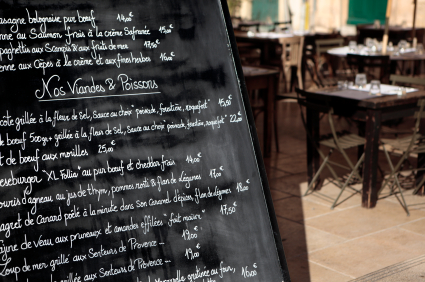 asagne bolognaise pur bœuf 14,00€
enne au Saumon frais à la crème Safranée 15,00€
paghettis aux Scampis & aux fruits de mer 17,50€
enne aux Cèpes à l'ail et aux fines herbes 16,00€
Nos Viandes & Poissons
côte grillée à la fleur de Sel, Sauce au choix "poivrade, forestière, roquefort" 15,50€
de bœuf 500grs+ grillée à la fleur de sel, Sauce au choix "poivrade, forestière, roquefort" 22,00€
et de bœuf aux morilles 25,00€
eeseburger XL Folia au pur bœuf et cheddar frais 14,00€
ouris d'agneau au jus de thym, pommes roiti & flan de légumes 17,00€
agret de Canard poêlé à la minute dans Son Caramel d'épices, flan de légumes 18,00€
gine de veau aux pruneaux et amandes effilées "fait maison" 17,50€
Loup de mer grillé aux Senteurs de Provence 19,00€
grillée aux Senteurs de Provence 19,00€
gratinée au four, 16,00€